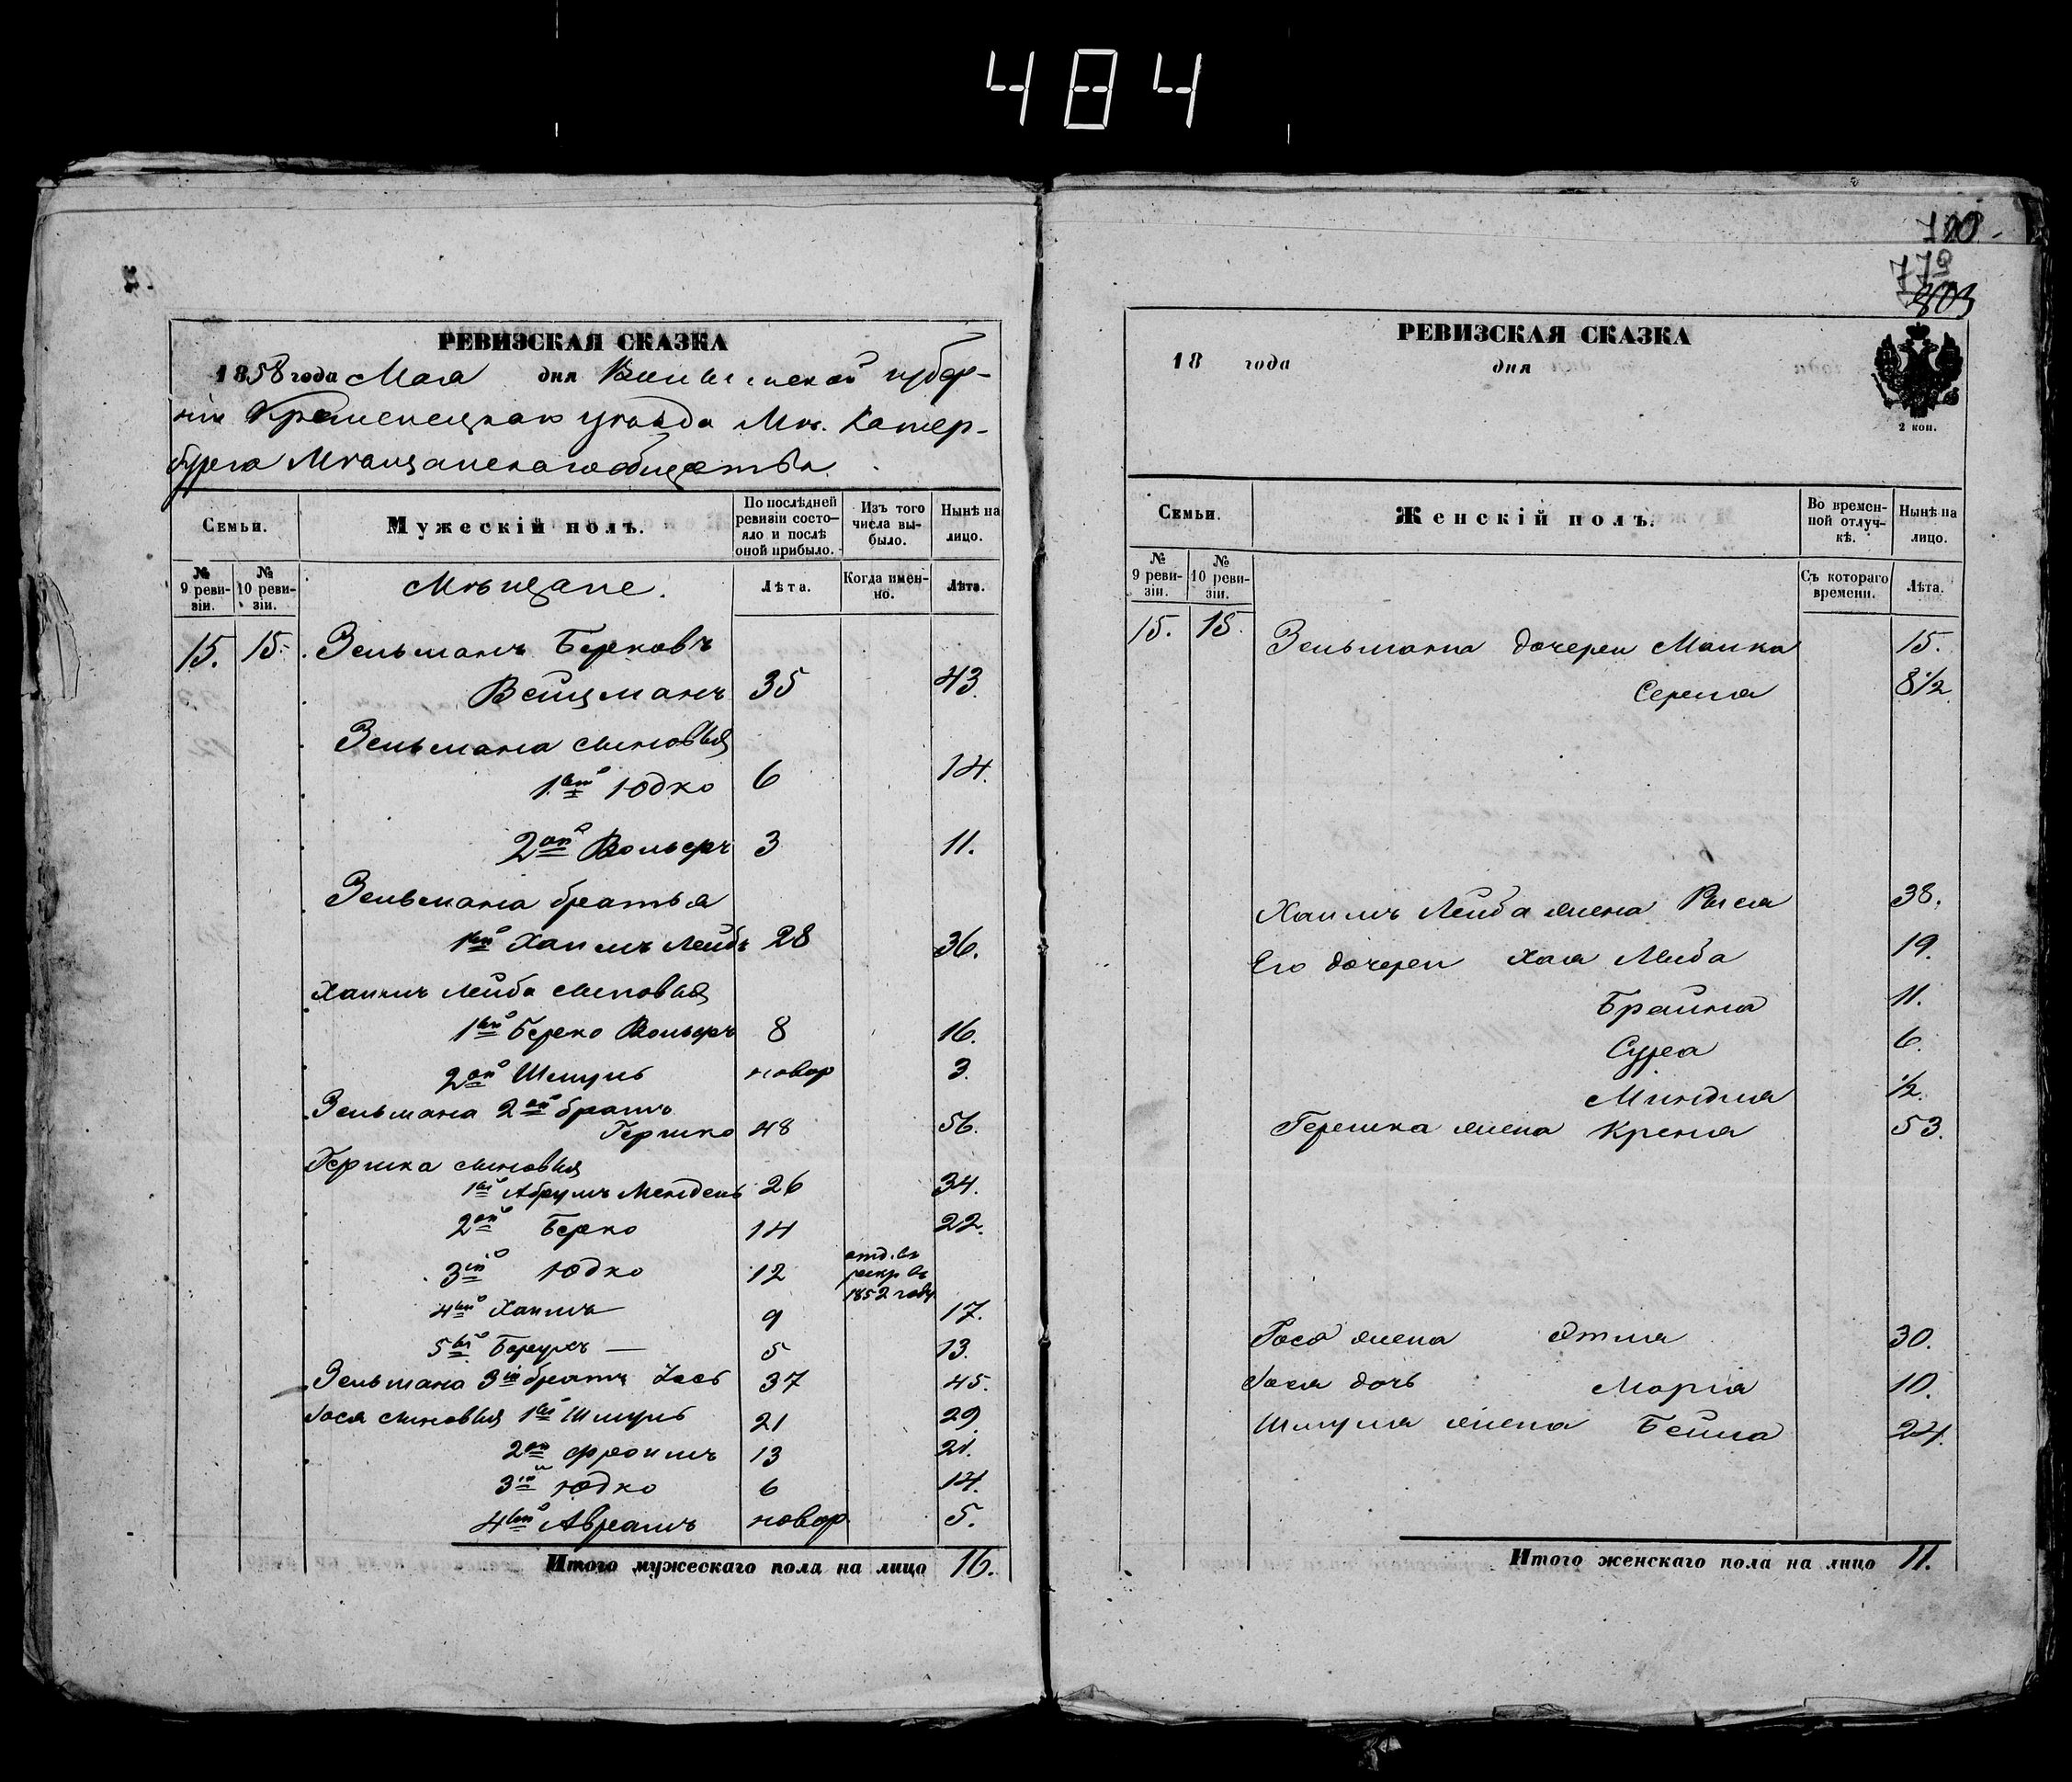 484
700
779
803
РЕВИЗСКАЯ СКАЗКА
1858 года Мая дня Волынской губер-
ніи Кременецкаго уѣзда Мѣ. Катер-
бурга Мѣщанскаго общества.
Семьи.
Мужескій полъ.
По послѣдней ревизіи состо-
яло и послѣ оной прибыло.
Изъ того числа вы-
было.
Нынѣ на лицо.
№ 9 реви-
зіи.
№ 10 реви-
зіи.
Мѣщане.
Лѣта.
Когда имен-
но.
Лѣта.
15. 15. Зельманъ Берковъ
Вейцманъ 35 43.
Зельмана сыновья
1вый Юдко 6 14.
2ой Вольфъ 3 11.
Зельмана братья
1вый Хаимъ Лейбъ 28 36.
Хаимъ Лейба сыновья
1вый Берко Вольфъ 8 16.
2ой Шмуль новор 3.
Зельмана 2ой братъ
Гершко 48 56.
Гершка сыновья
1вый Абрумъ Мендель 26 34.
2ой Берко 14 22.
3ій Юдко 12 отд. въ рекр въ 1852 году
4вый Хаимъ 9 17.
5вый Борухъ — 5 13.
Зельмана 3ій братъ Iось 37 45.
Iося сыновья 1вый Шмуль 21 29.
2ой Фроимъ 13 21.
3ій Юдко 6 14.
4вый Авраамъ новор 5.
Итого мужескаго пола на лицо 16.
РЕВИЗСКАЯ СКАЗКА
18 года дня
2 коп.
Семьи.
Женскій полъ.
Во времен-
ной отлуч-
кѣ.
Нынѣ на лицо.
№ 9 реви-
зіи.
№ 10 реви-
зіи.
Съ котораго времени.
Лѣта.
15. 15. Зельмана дочери Малка 15.
Серела 8½
Хаимъ Лейба жена Рыся 38.
Его дочери Хая Люба 19.
Брайна 11.
Сура 6.
Миндля ½.
Гершка жена Креня 53.
Iося жена Этля 30.
Iося дочь Марія 10.
Шмуля жена Бейла 24.
Итого женскаго пола на лицо 11.